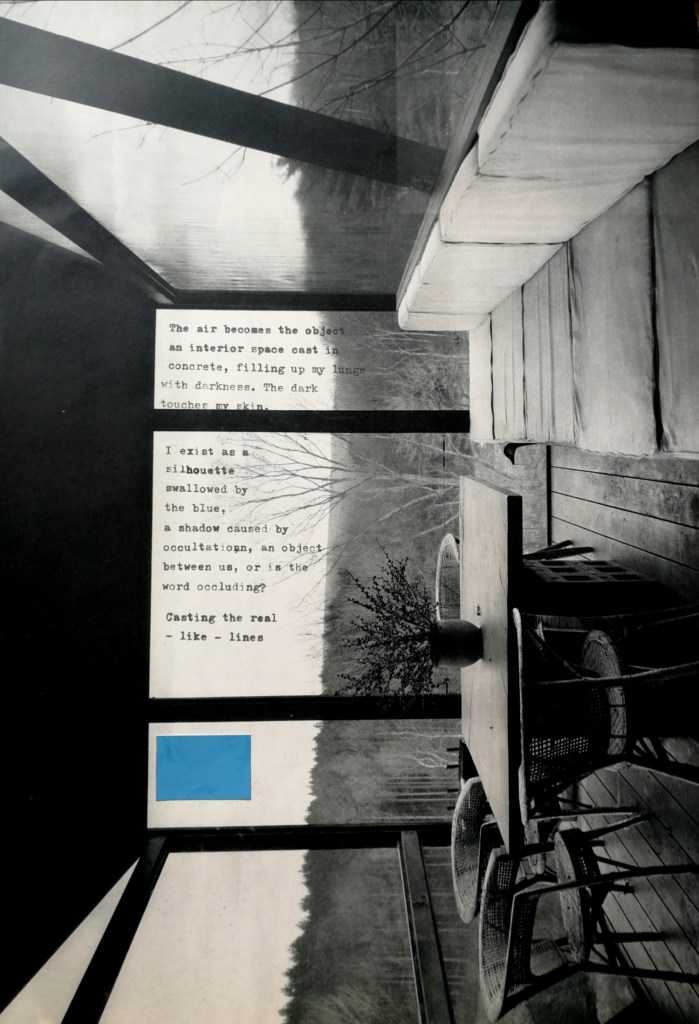 The air becomes the object
an interior space cast in
concrete, filling up my lungs
with darkness. The dark
touches my skin.
I exist as a
silhouette
swallowed by
the blue,
a shadow caused by
occultatiopn, an object
between us, or is the
word occluding?
Casting the real
- like - lines